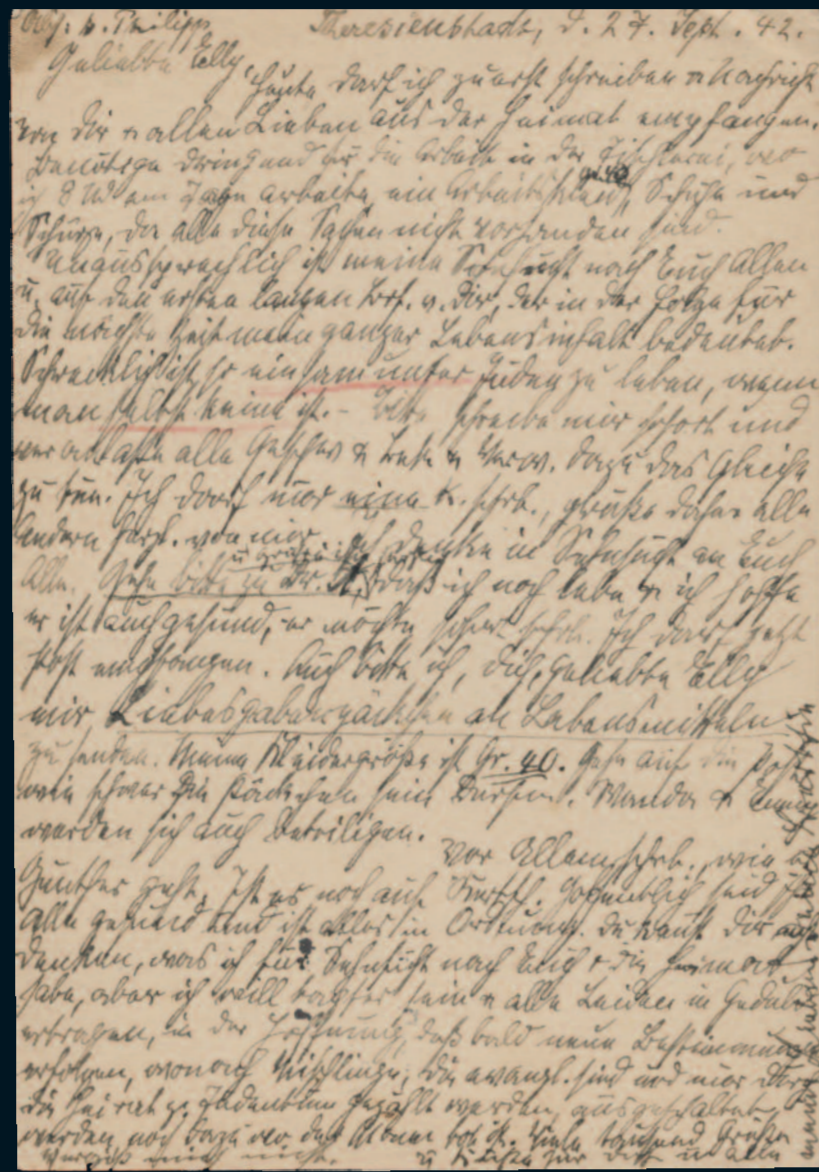 Abs: b. Philipp Theresienstadt, d. 27. Sept. 42.
Geliebte Elly,
heute darf ich zuerst schreiben u Nachricht
von Dir u allen Lieben aus der Heimat empfangen.
Benötige dringend für die Arbeit in der Tischlerei, wo
ich 8 Std am Tage arbeite, ein Arbeitskleid gr. 40, Schuhe und
Schürze, da alle diese Sachen nicht vorhanden sind.
Unaussprechlich ist meine Sehnsucht nach Euch Allen
u. auf den ersten langen Brf. v. Dir, der in der Folge für
die nächste Zeit mein ganzer Lebensinhalt bedeutet.
Schrecklich ist, so einsam unter Juden zu leben, wenn
man selbst keine ist. - Bitte schreibe mir sofort und
veranlasse alle Geschw u Bek. u Verw. dazu das Gleiche
zu tun. Ich darf nur eine K. schrb., grüße daher alle
Andern herzl. von mir. Ich denke in Sehnsucht an Euch
Alle. Gehe bitte zu Dr. daß ich noch lebe u ich hoffe
er ist auch gesund, er möchte schrb. Ich darf jetzt
Post empfangen. Auch bitte ich, Dich, geliebte Elly
mir Liebesgabenpäckchen an Lebensmitteln
zu senden. Meine Kleidergröße ist Gr. 40. Gehe auf die Post
wie schwer die Päckchen sein dürfen. Wanda u
werden sich auch beteiligen.
Vor Allem, schrb., wie es
Günther geht. Ist er noch auf Hoffentlich seid
Alle gesund und ist Alles in Ordnung. Du kannst Dir
denken, was ich für Sehnsucht nach Euch u die Heimat
habe, aber ich will tapfer sein u alle Leiden in Geduld
ertragen, in der Hoffnung, daß bald neue Bestimmungen
erfolgen, wonach Mischlinge, die evangl. sind und nur durch
die Heirat z. Judentum gezählt werden, ausgeschaltet
werden, noch dazu wo der Mann tot ist. Viele tausend Grüße
u Küsse für Dich u alle
Vergiß mich nicht.